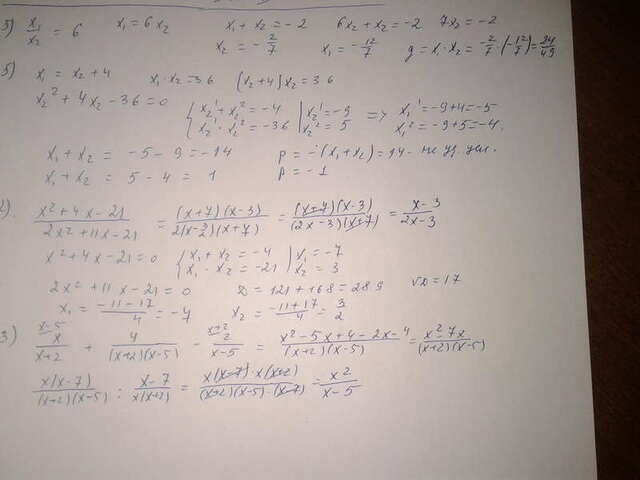 3) x₁/x₂ = 6 x₁ = 6x₂ x₁ + x₂ = -2 6x₂ + x₂ = -2 7x₂ = -2
x₂ = -2/7 x₁ = -12/7 g = x₁·x₂ = -2/7·(-12/7) = 24/49
5) x₁ = x₂ + 4 x₁·x₂ = 36 (x₂+4)x₂ = 36
x₂² + 4x₂ - 36 = 0 { x₂¹ + x₂² = -4 | x₂¹ = -9 => x₁¹ = -9+4 = -5
x₂¹·x₂² = -36 | x₂² = 5 x₁² = -9+5 = -4.
x₁ + x₂ = -5 - 9 = -14 p = -(x₁+x₂) = 14 - не уд. усл.
x₁ + x₂ = 5 - 4 = 1 p = -1
2). (x²+4x-21)/(2x²+11x-21) = ((x+7)(x-3))/(2(x-3/2)(x+7)) = ((x+7)(x-3))/((2x-3)(x+7)) = (x-3)/(2x-3)
x² + 4x - 21 = 0 { x₁ + x₂ = -4 | x₁ = -7
x₁·x₂ = -21 | x₂ = 3
2x² + 11x - 21 = 0 D = 121 + 168 = 289 √D = 17
x₁ = (-11-17)/4 = -7 x₂ = (-11+17)/4 = 3/2
3) x/(x+2) + 4/((x+2)(x-5)) - 2/(x-5) = (x²-5x+4-2x-4)/((x+2)(x-5)) = (x²-7x)/((x+2)(x-5))
x(x-7)/((x+2)(x-5)) : (x-7)/(x(x+2)) = (x(x-7)·x(x+2))/((x+2)(x-5)·(x-7)) = x²/(x-5)